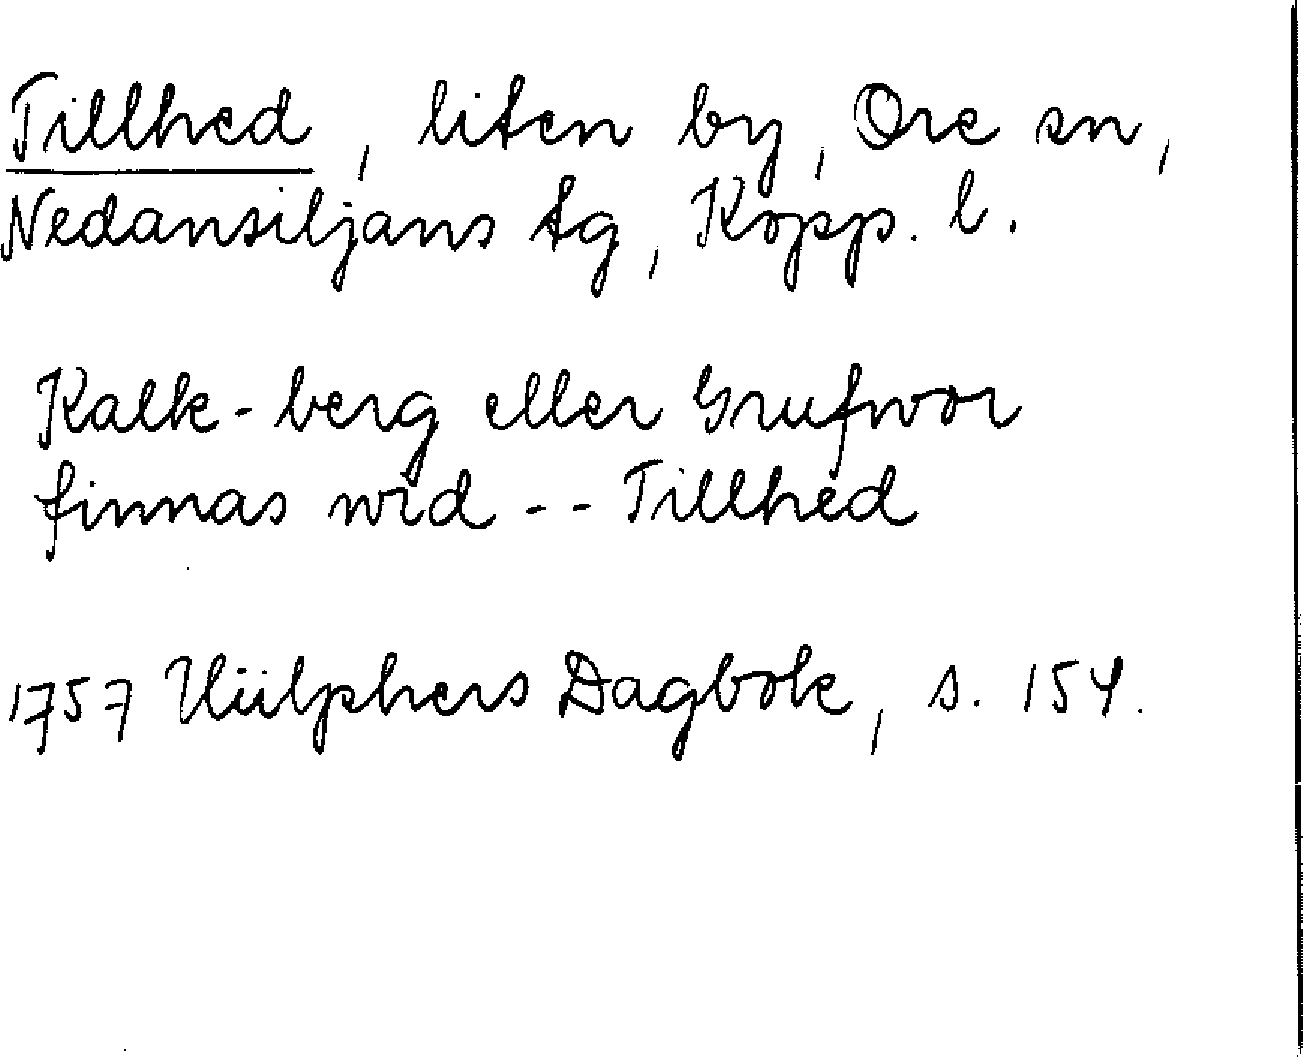 Tillhed, liten by, Ore sn,
Nedansiljans tg, Kopp. l.
Kalk-berg eller Grufwor
finnas wid -- Tillhed
1757 Hülphers Dagbok, s. 154.